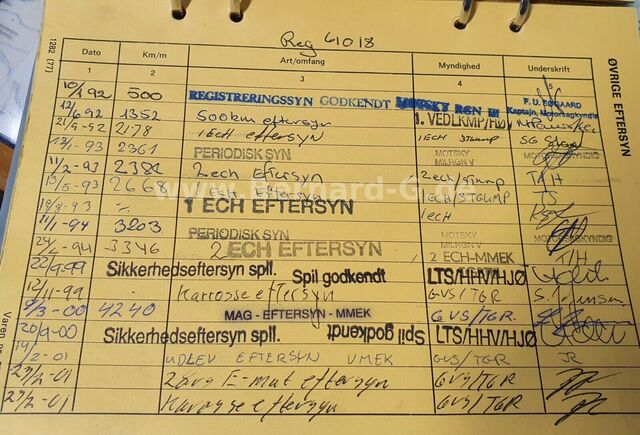 1282 (77)
Reg 61018
ØVRIGE EFTERSYN
Dato Km/m Art/omfang Myndighed Underskrift
1 2 3 4 5
10/1 92 500 REGISTRERINGSSYN GODKENDT MOTSKY RGN III F. U. BØGAARD
Kaptajn, Motorsagkyndig
12/6 92 1352 500km eftersyn 1. VEDLKMP/HØ
21/9-92 2178 1ECH eftersyn 1ECH STGUMP
13/1-93 2361 PERIODISK SYN MOTSKY
MILRGN V MOTORSAGKYNDIG
11/2-93 2381 2ech eftersyn 2ech/Stump
15/6-93 2668 1ECH Eftersyn 1ECH/STGUMP
www.Bernard-G.de
19/8-93 -/. 1 ECH EFTERSYN 1ech
11/1-94 3203 PERIODISK SYN MOTSKY
MILRGN V MOTORSAGKYNDIG
24/2-94 3346 2 ECH EFTERSYN 2 ECH-MMEK
22/9-99 Sikkerhedseftersyn spll. Spil godkendt LTS/HHV/HJØ
12/11-99 Karrosse eftersyn GVS/TGR
9/3-00 4240 MAG - EFTERSYN - MMEK GVS/TGR.
20/9-00 Sikkerhedseftersyn spll. Spil godkendt LTS/HHV/HJØ
19/2-01 UDLEV EFTERSYN VMEK GVS/TGR JR
27/2-01 2års E-mat eftersyn GVS/TGR
27/2-01 Karosse eftersyn GVS/TGR